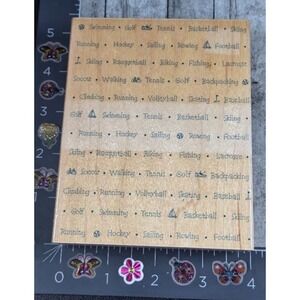 Swimming • Golf Tennis • Basketball • Skiing
Running • Hockey • Sailing • Rowing Football
Skiing • Racquetball • Biking • Fishing • Lacrosse
Soccer • Walking Tennis • Golf • Backpacking
Climbing • Running • Volleyball • Skating Baseball
Golf Swimming • Tennis Basketball • Skiing
• Running • Hockey • Sailing • Rowing Football
Skiing • Racquetball • Biking • Fishing • Lacrosse
Soccer • Walking • Tennis • Golf Backpacking
Climbing • Running • Volleyball • Skating • Baseball
• Golf • Swimming • Tennis Basketball • Skiing
Running • Hockey • Sailing • Rowing • Football
5
4
3
2
1
0 1 2 3 4